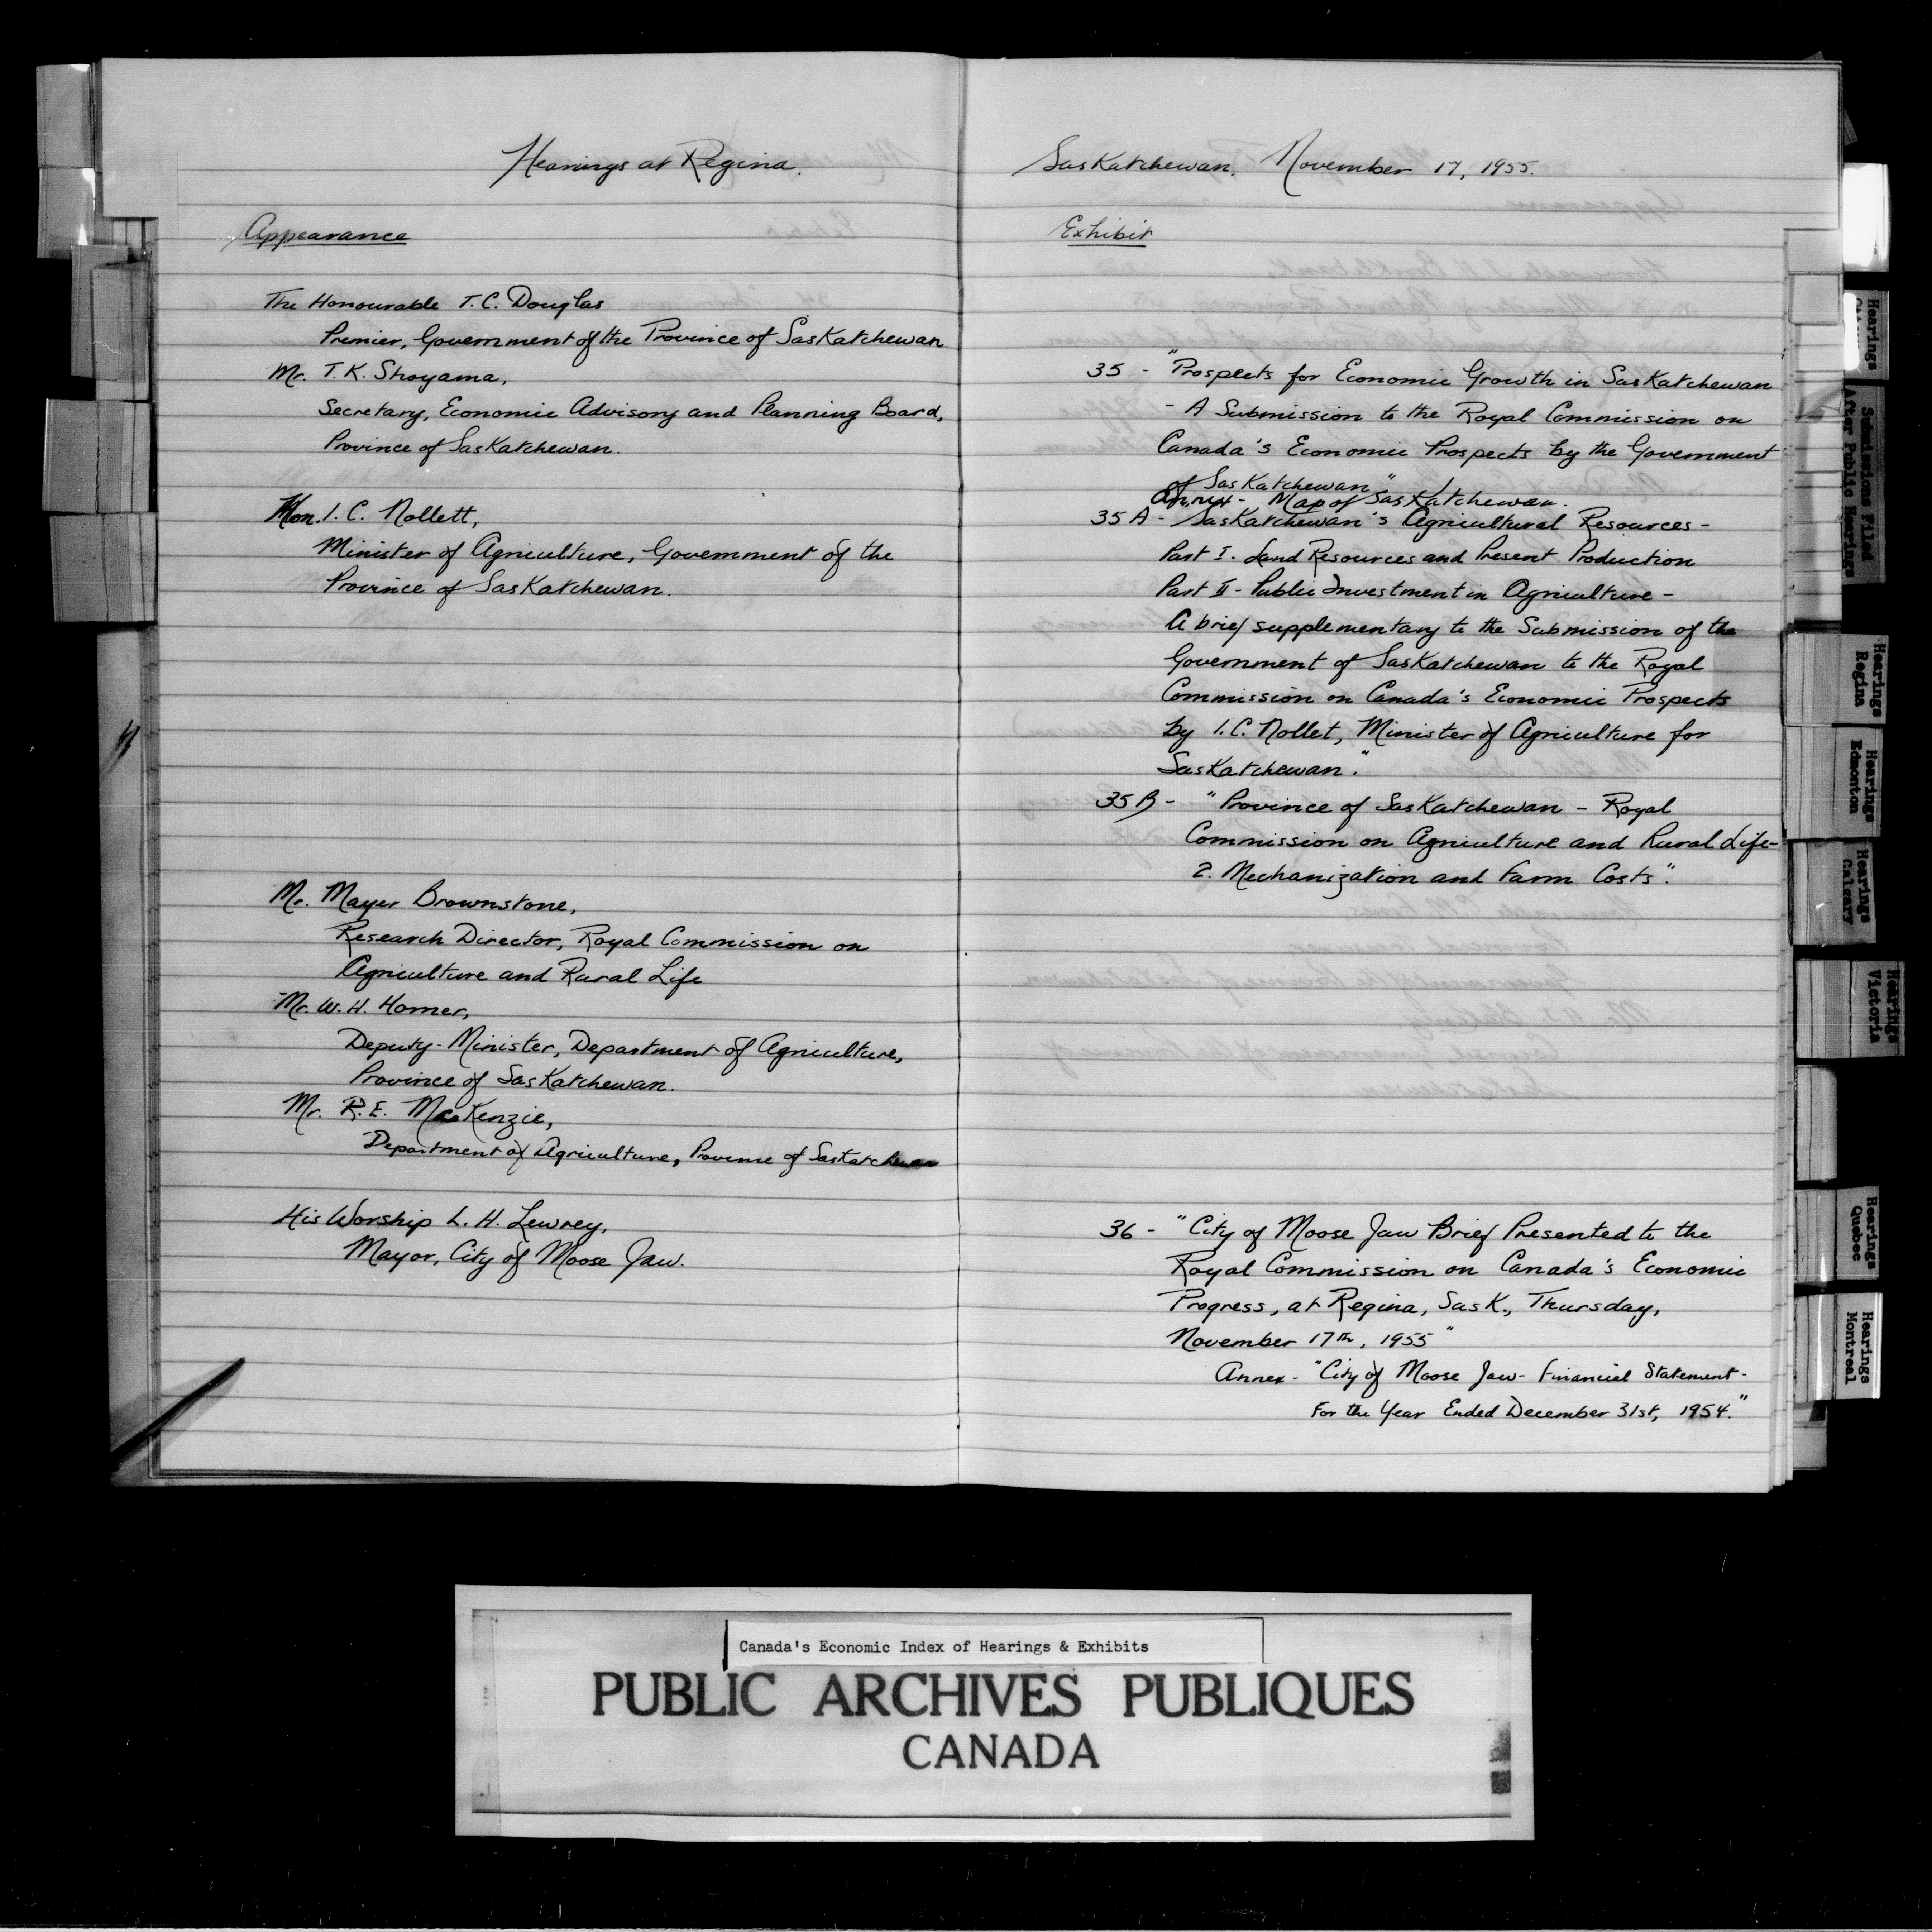 Hearings at Regina.
Appearance
The Honourable T.C. Douglas
Premier, Government of the Province of Saskatchewan
Mr. T.K. Shoyama,
Secretary, Economic Advisory and Planning Board,
Province of Saskatchewan.
Hon. I.C. Nollett,
Minister of Agriculture, Government of the
Province of Saskatchewan.
Mr. Mayer Brownstone,
Research Director, Royal Commission on
Agriculture and Rural Life
Mr. W.H. Horner,
Deputy-Minister, Department of Agriculture,
Province of Saskatchewan.
Mr. R.E. MacKenzie,
Department of Agriculture, Province of Saskatchewan
His Worship L.H. Lewrey,
Mayor, City of Moose Jaw.
Saskatchewan. November 17, 1955.
Exhibit
35 - "Prospects for Economic Growth in Saskatchewan
- A Submission to the Royal Commission on
Canada's Economic Prospects by the Government
of Saskatchewan"
Annex - Map of Saskatchewan.
35A - Saskatchewan's Agricultural Resources -
Part I. Land Resources and Present Production
Part II - Public Investment in Agriculture -
A brief supplementary to the Submission of the
Government of Saskatchewan to the Royal
Commission on Canada's Economic Prospects
by I.C. Nollet, Minister of Agriculture for
Saskatchewan."
35B - "Province of Saskatchewan - Royal
Commission on Agriculture and Rural Life-
2. Mechanization and Farm Costs".
36 - "City of Moose Jaw Brief Presented to the
Royal Commission on Canada's Economic
Progress, at Regina, Sask., Thursday,
November 17th, 1955"
Annex - "City of Moose Jaw - Financial Statement -
For the Year Ended December 31st, 1954."
Hearings
Submissions Filed
After Public Hearings
Hearings
Regina
Hearings
Edmonton
Hearings
Calgary
Hearings
Victoria
Hearings
Quebec
Hearings
Montreal
Canada's Economic Index of Hearings & Exhibits
PUBLIC ARCHIVES PUBLIQUES
CANADA